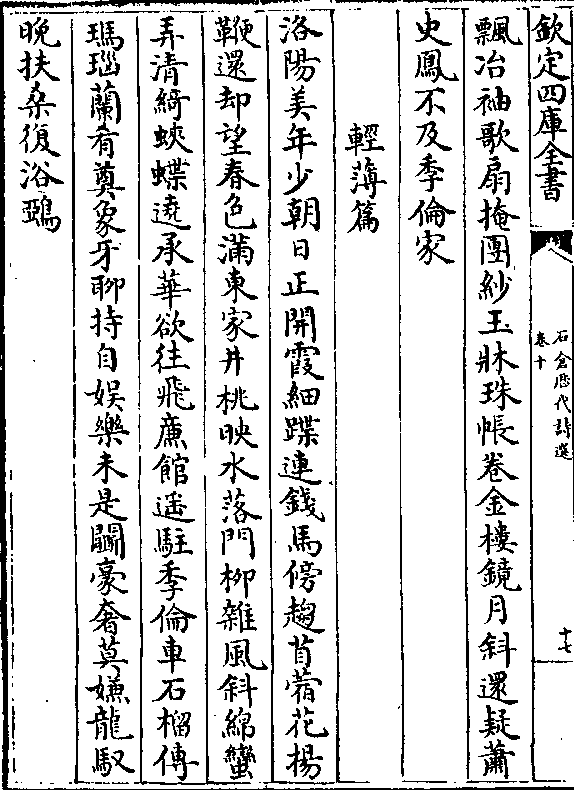 欽定四庫全書
石倉厯代詩選
卷十
十七
飄冶袖歌扇掩團紗玉牀珠帳卷金樓鏡月斜還疑蕭
史鳳不及季倫家
輕薄篇
洛陽美年少朝日正開霞細蹀連錢馬傍趨苜蓿花楊
鞭還却望春色滿東家井桃映水落門柳雜風斜綿蠻
弄清綺蛺蝶遶承華欲往飛廉館遥駐季倫車石榴傳
瑪瑙蘭肴奠象牙聊持自娱樂未是鬭豪奢莫嫌龍馭
晚扶桑復浴鵶